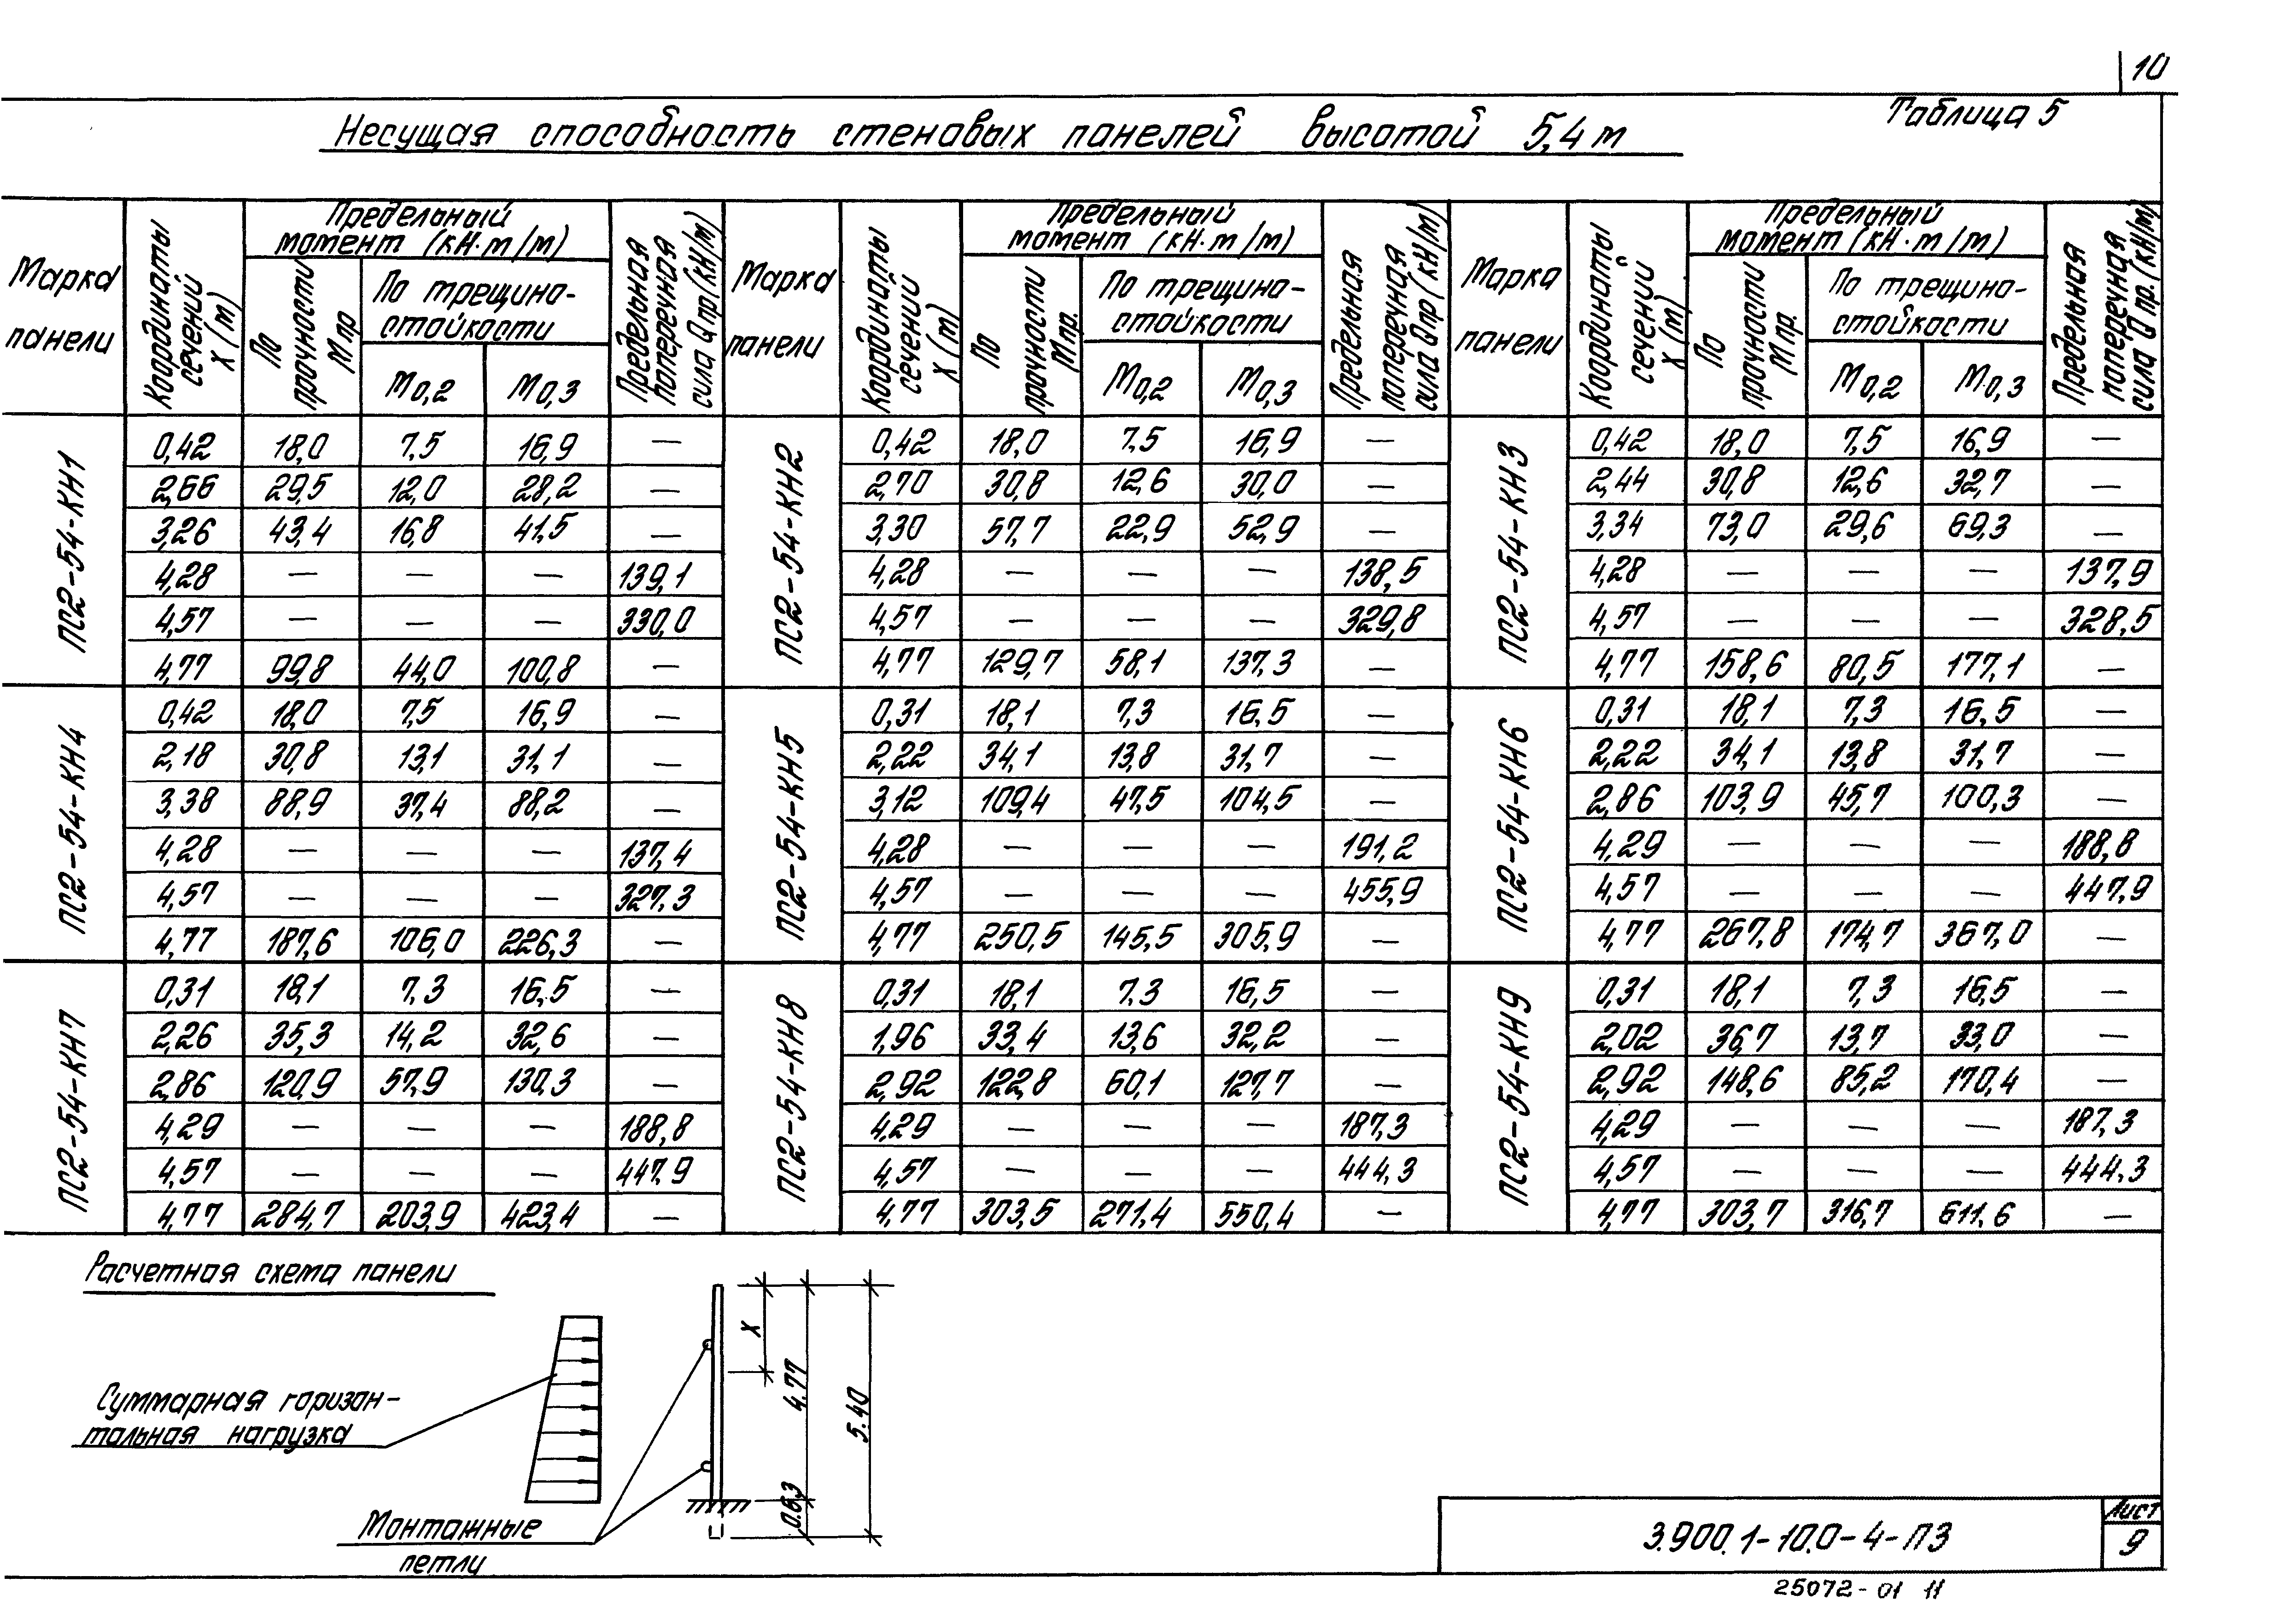 10
Таблица 5
Несущая способность стеновых панелей высотой 5,4 м
Марка панели | Координаты сечений X (м) | Предельный момент (кН·м/м) | Предельная поперечная сила Qпр (кН/м) | Марка панели | Координаты сечений X (м) | Предельный момент (кН·м/м) | Предельная поперечная сила Qпр (кН/м) | Марка панели | Координаты сечений X (м) | Предельный момент (кН·м/м) | Предельная поперечная сила Qпр. (кН/м)
По прочности Mпр | По трещино-стойкости | По прочности Mпр. | По трещино-стойкости | По прочности Mпр. | По трещино-стойкости
M0,2 | M0,3 | M0,2 | M0,3 | M0,2 | M0,3
ПС2-54-КН1
0,42 18,0 7,5 16,9 —
2,66 29,5 12,0 28,2 —
3,26 43,4 16,8 41,5 —
4,28 — — — 139,1
4,57 — — — 330,0
4,77 99,8 44,0 100,8 —
ПС2-54-КН2
0,42 18,0 7,5 16,9 —
2,70 30,8 12,6 30,0 —
3,30 57,7 22,9 52,9 —
4,28 — — — 138,5
4,57 — — — 329,8
4,77 129,7 58,1 137,3 —
ПС2-54-КН3
0,42 18,0 7,5 16,9 —
2,44 30,8 12,6 32,7 —
3,34 73,0 29,6 69,3 —
4,28 — — — 137,9
4,57 — — — 328,5
4,77 158,6 80,5 177,1 —
ПС2-54-КН4
0,42 18,0 7,5 16,9 —
2,18 30,8 13,1 31,1 —
3,38 88,9 37,4 88,2 —
4,28 — — — 137,4
4,57 — — — 327,3
4,77 187,6 106,0 226,3 —
ПС2-54-КН5
0,31 18,1 7,3 16,5 —
2,22 34,1 13,8 31,7 —
3,12 109,4 47,5 104,5 —
4,28 — — — 191,2
4,57 — — — 455,9
4,77 250,5 145,5 305,9 —
ПС2-54-КН6
0,31 18,1 7,3 16,5 —
2,22 34,1 13,8 31,7 —
2,86 103,9 45,7 100,3 —
4,29 — — — 188,8
4,57 — — — 447,9
4,77 267,8 174,7 367,0 —
ПС2-54-КН7
0,31 18,1 7,3 16,5 —
2,26 35,3 14,2 32,6 —
2,86 120,9 57,9 130,3 —
4,29 — — — 188,8
4,57 — — — 447,9
4,77 284,7 203,9 423,4 —
ПС2-54-КН8
0,31 18,1 7,3 16,5 —
1,96 33,4 13,6 32,2 —
2,92 122,8 60,1 127,7 —
4,29 — — — 187,3
4,57 — — — 444,3
4,77 303,5 271,4 550,4 —
ПС2-54-КН9
0,31 18,1 7,3 16,5 —
2,02 36,7 13,7 33,0 —
2,92 148,6 85,2 170,4 —
4,29 — — — 187,3
4,57 — — — 444,3
4,77 303,7 316,7 611,6 —
Расчетная схема панели
Суммарная горизон-
тальная нагрузка
Монтажные
петли
X
4.77
0.63
5.40
3.900.1-10.0-4-ПЗ
Лист
9
25072-01 11